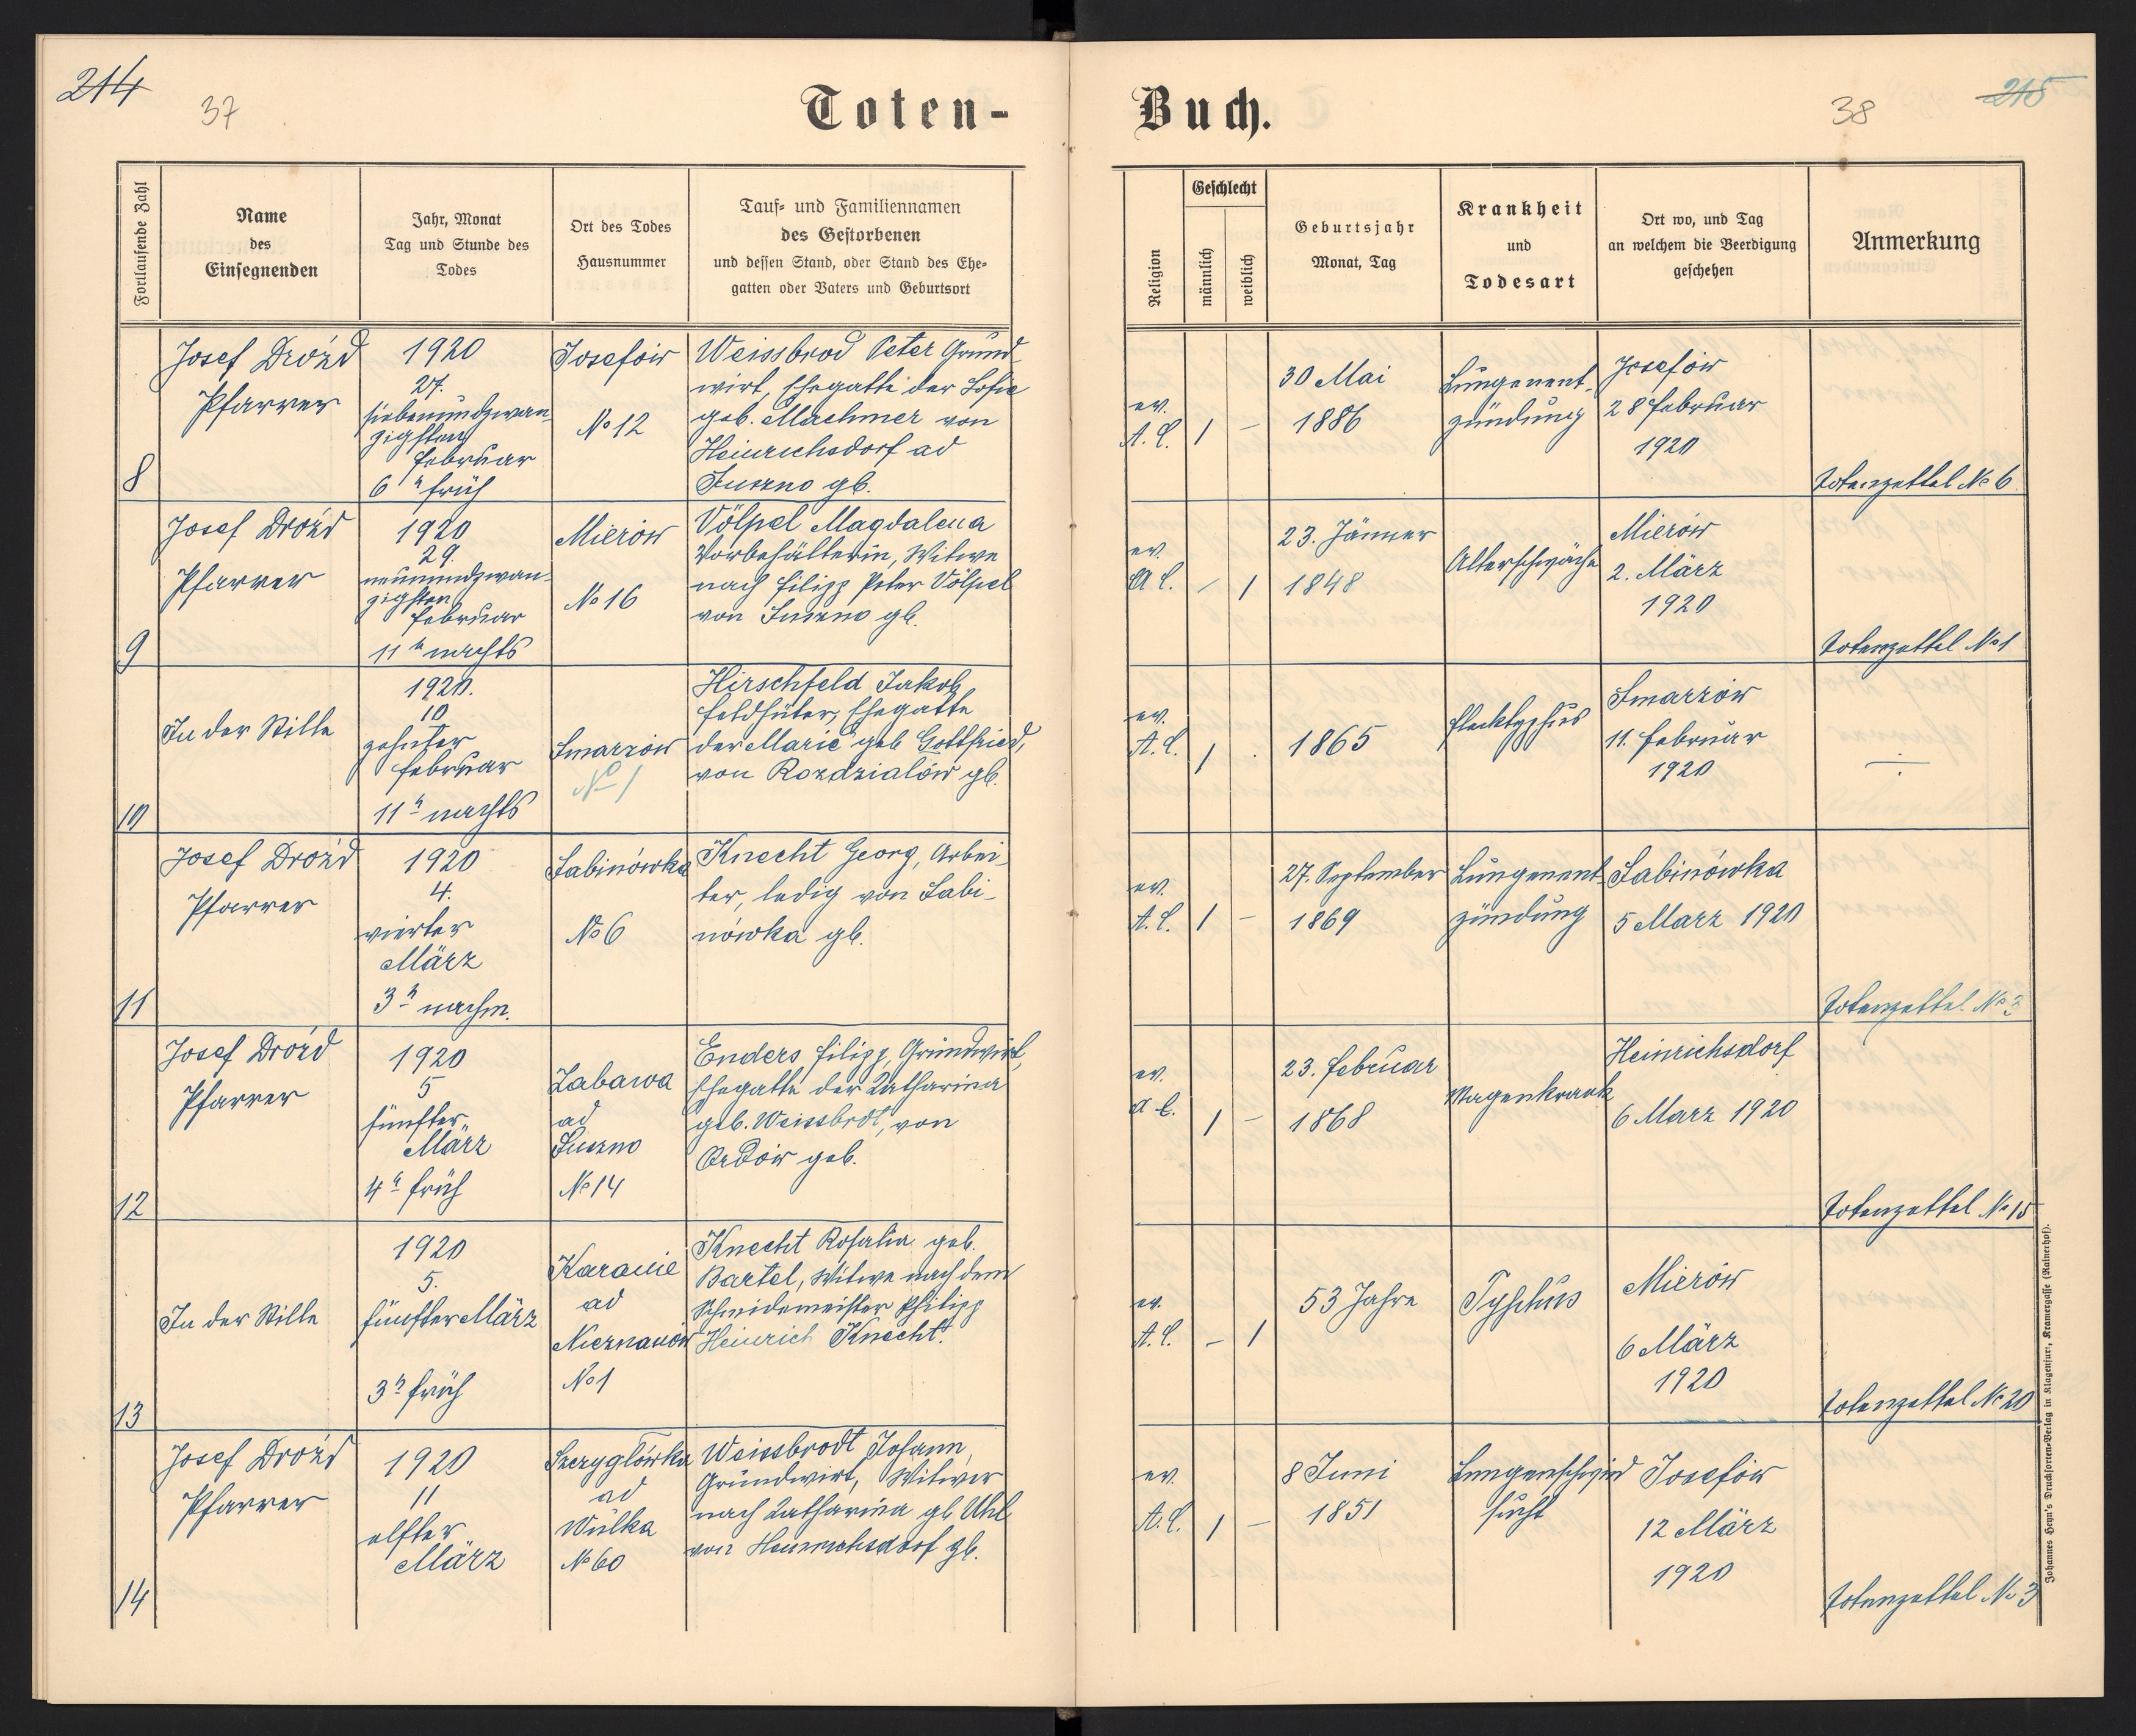 214
37
Toten-
Fortlaufende Zahl
Name
des
Einsegnenden
Jahr, Monat
Tag und Stunde des
Todes
Ort des Todes
Hausnummer
Tauf- und Familiennamen
des Gestorbenen
und dessen Stand, oder Stand des Ehe-
gatten oder Vaters und Geburtsort
8
Josef Drozd
Pfarrer
1920
27.
siebenundzwan-
zigsten
Februar
6 h früh
Josefów
No 12
Weissbrod Peter Grund-
wirt, Ehegatte der Sofie
geb. Machmer von
Heinrichsdorf ad
Suszno gb.
9
Josef Drozd
Pfarrer
1920
29.
neunundzwan-
zigsten
Februar
11 h nachts
Mierów
No 16
Völpel Magdalena
Vorbehälterin, Witwe
nach Filipp Peter Völpel
von Suszno gb.
10
In der Stille
1920.
10
zehnter
Februar
11 h nachts
Smarzów
No 1
Hirschfeld Jakob,
Feldhüter, Ehegatte
der Marie geb Gottfried,
von Rozdzialów gb.
11
Josef Drozd
Pfarrer
1920
4.
vierter
März
3 h nachm.
Sabinówka
No 6
Knecht Georg, Arbei-
ter, ledig von Sabi-
nówka gb.
12
Josef Drozd
Pfarrer
1920
5
fünfter
März
4 h früh
Zabawa
ad
Suszno
No 14
Enders Filipp, Grundwirt,
Ehegatte der Katharina
geb. Weissbrodt, von
Ordów geb.
13
In der Stille
1920
5.
fünfter März
3 h früh
Karanie
ad
Nieznanów
No 1
Knecht Rosalia geb.
Bartel, Witwe nach dem
Schmidemeister Philipp
Heinrich Knecht.
14
Josef Drozd
Pfarrer
1920
11
elfter
März
Szczyglówka
ad
Wulka
No 60
Weissbrodt Johann,
Grundwirt, Witwer
nach Katharina gb Uhl
von Heinrichsdorf gb.
Buch.
38
215
Religion
Geschlecht
männlich
weiblich
Geburtsjahr
Monat, Tag
Krankheit
und
Todesart
Ort wo, und Tag
an welchem die Beerdigung
geschehen
Anmerkung
ev.
A. C.
1
-
30 Mai
1886
Lungenent-
zündung
Josefów
28 Februar
1920
Totenzettel No 6
ev.
A C.
-
1
23. Jänner
1848
Alterschwäche
Mierów
2. März
1920
Totenzettel No 1
ev.
A. C.
1
.
1865
Flecktyphus
Smarzów
11. Februar
1920
ev.
A. C.
1
-
27. September
1869
Lungenent-
zündung
Sabinówka
5 März 1920
Totenzettel No 3
ev.
A C.
1
-
23. Februar
1868
Magenkrank
Heinrichsdorf
6 März 1920
Totenzettel No 15
ev.
A. C.
-
1
53 Jahre
Typhus
Mierów
6 März
1920
Totenzettel No 20
ev.
A. C.
1
-
8 Juni
1851
Lungenschwind
sucht
Josefów
12 März
1920
Totenzettel No 3
Johannes Heyn's Drucksorten-Verlag in Klagenfurt, Kramergasse (Rainerhof).